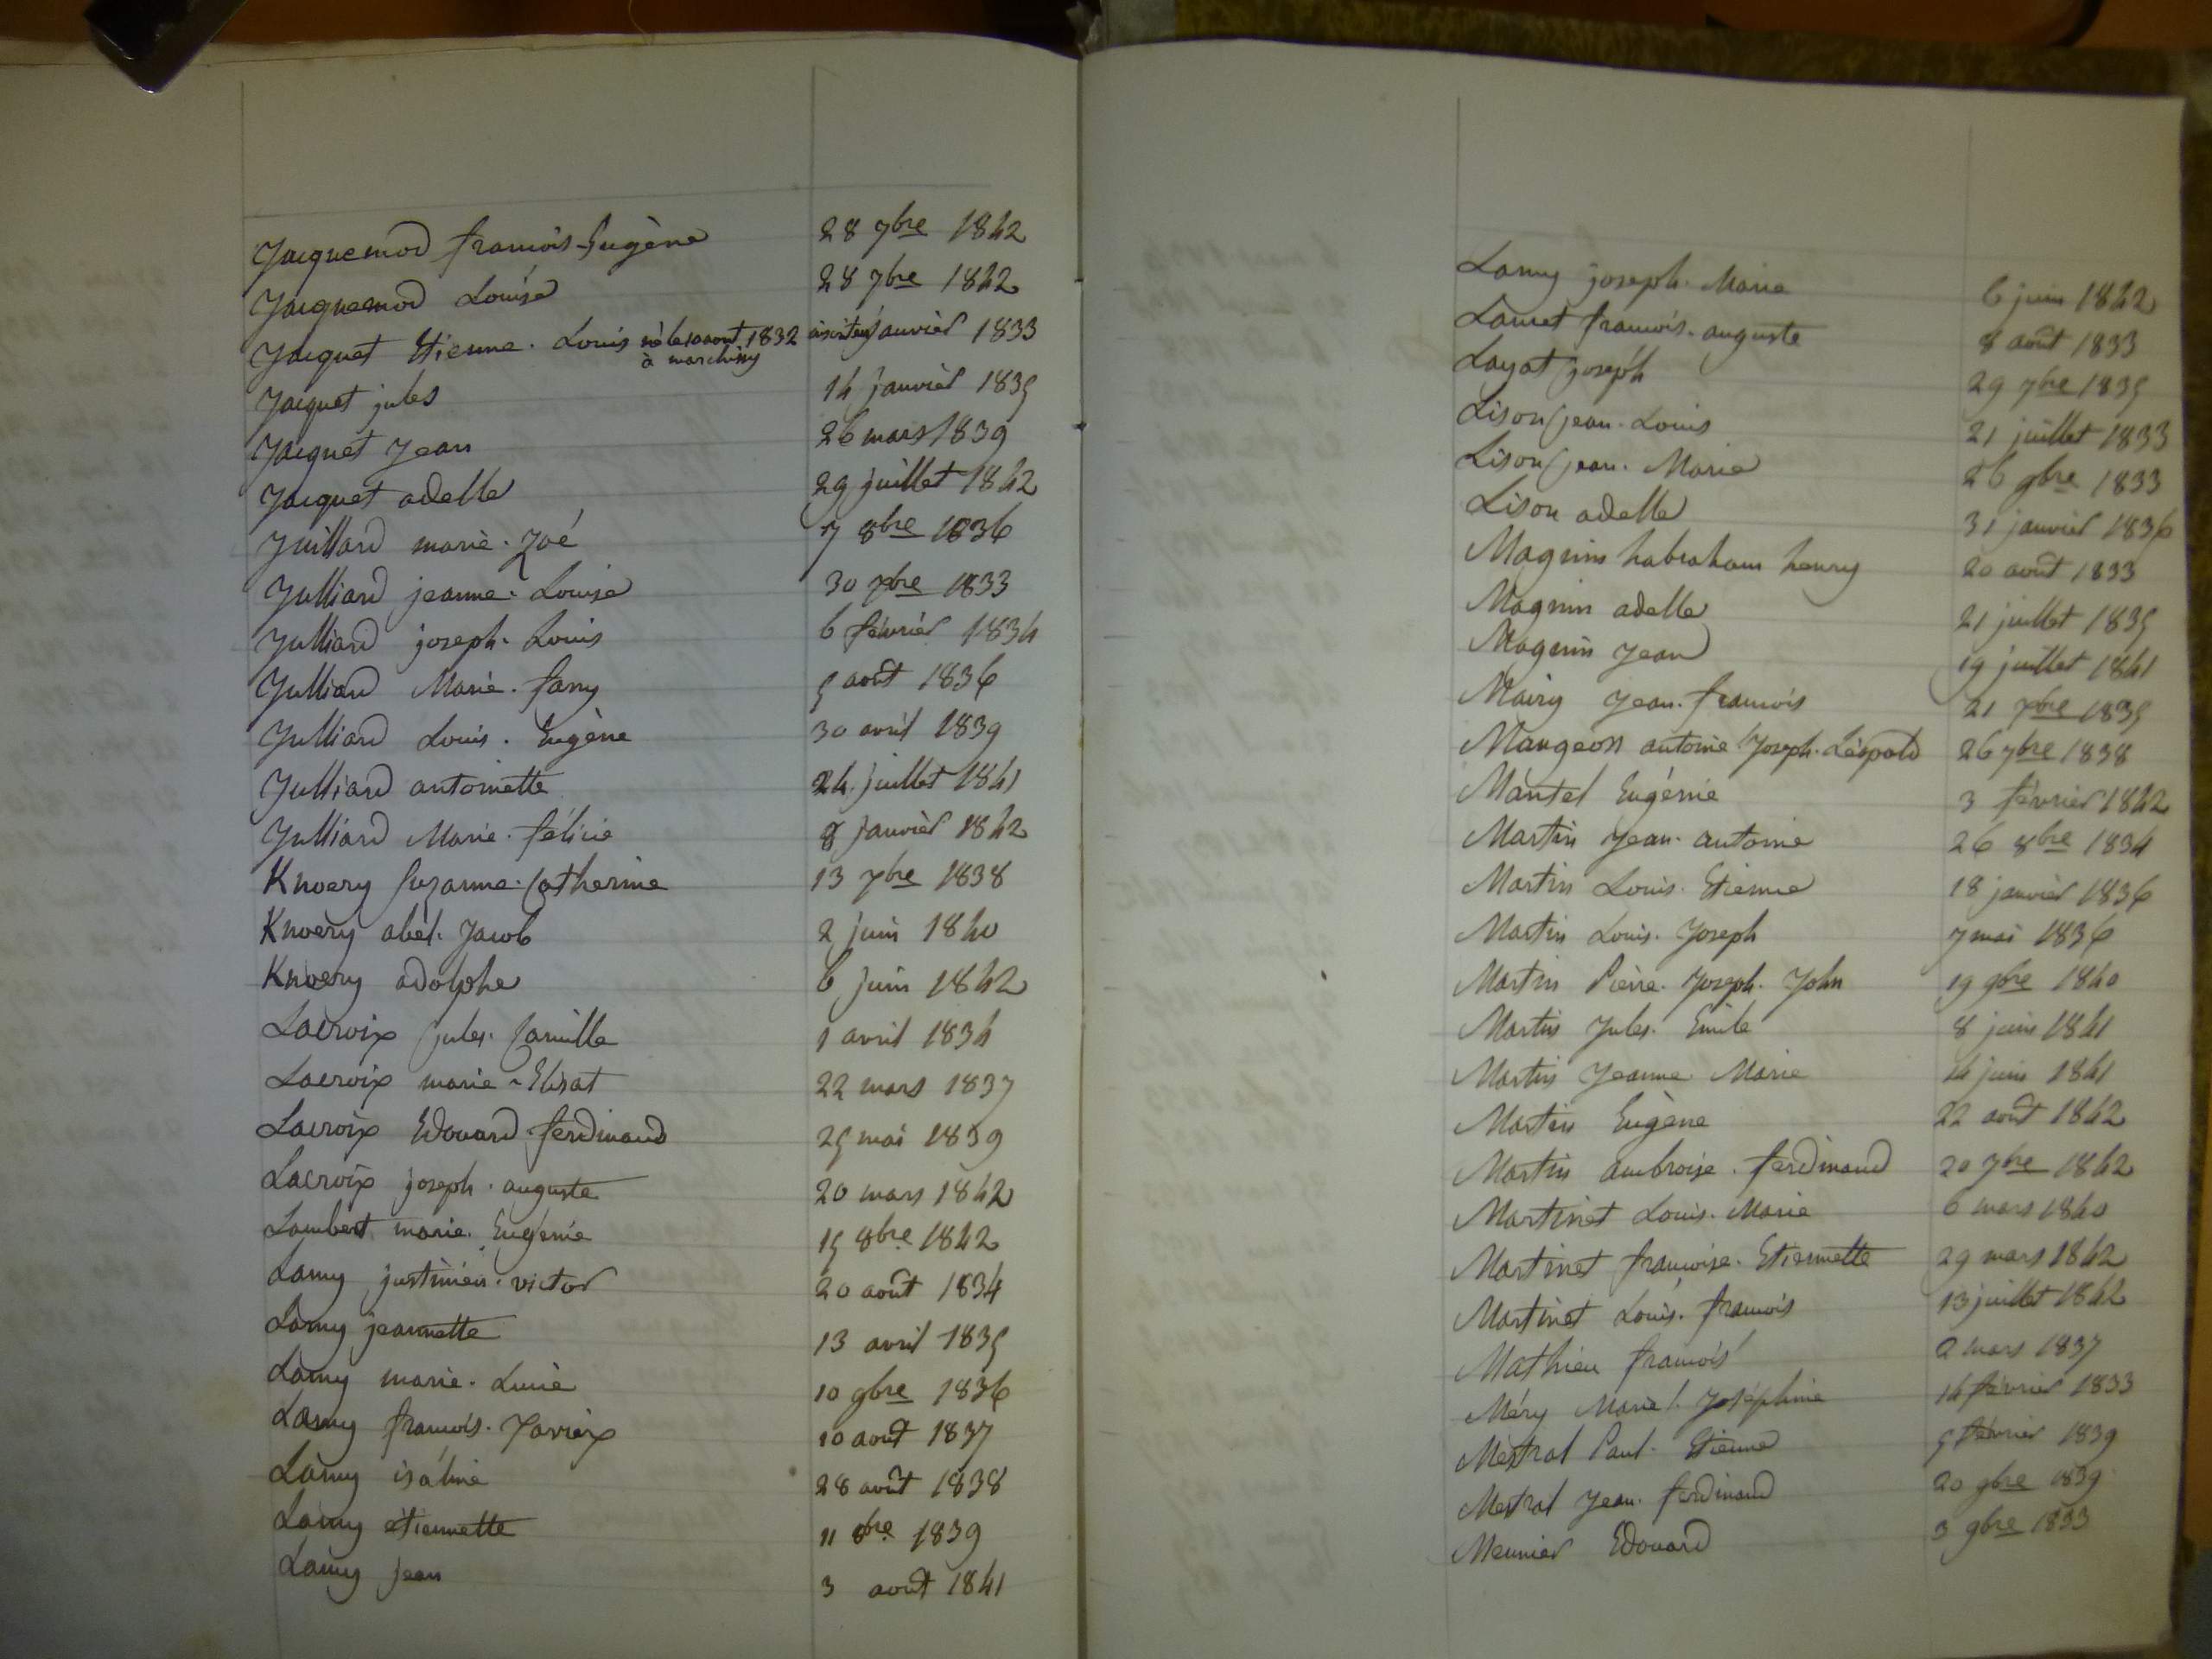 Jacquemod françois-Eugène 28 7bre 1842
Jacquemod Louise 28 7bre 1842
Jacquet Etienne. Louis né le 10 août 1832 à marchissy inscrit en janvier 1833
Jacquet jules 14 janvier 1835
Jacquet Jean 26 mars 1839
Jacquet adelle 29 juillet 1842
Juillard marie. Zoé 7 8bre 1836
Julliard jeanne. Louise 30 xbre 1833
Julliard joseph. Louis 6 février 1834
Julliard Marie. fany 5 août 1836
Julliard Louis. Eugène 30 avril 1839
Julliard antoinette 24 juillet 1841
Julliard Marie. félicie 8 janvier 1842
Knoery Suzanne. Catherine 13 7bre 1838
Knoery abel. Jacob 2 juin 1840
Knoery adolphe 6 juin 1842
Lacroix jules. Camille 1 avril 1834
Lacroix marie - Elisat 22 mars 1837
Lacroix Edouard. ferdinand 25 mai 1839
Lacroix joseph. auguste 20 mars 1842
Lambert marie. Eugénie 15 8bre 1842
Lamy justinien. victor 20 août 1834
Lamy jeannette 13 avril 1835
Lamy marie. Lucie 10 9bre 1836
Lamy françois. Xavier 10 août 1837
Lamy isaline 28 août 1838
Lamy étiennette 11 8bre 1839
Lamy jean 3 août 1841
Lamy joseph. Marie 6 juin 1842
Lamet françois. auguste 8 août 1833
Layat joseph 29 7bre 1835
Lison jean. Louis 21 juillet 1833
Lison jean. Marie 26 9bre 1833
Lison adelle 31 janvier 1836
Magnin habraham henry 20 août 1833
Magnin adelle 21 juillet 1835
Magnin Jean 19 juillet 1841
Mairy Jean. françois 21 xbre 1835
Maugeon antoine Joseph. Léopold 26 7bre 1838
Mantel Eugénie 3 février 1842
Martin Jean. antoine 26 8bre 1834
Martin Louis. Etienne 18 janvier 1836
Martin Louis. Joseph 7 mai 1836
Martin Pierre. Joseph. John 19 9bre 1840
Martin Jules. Emile 8 juin 1841
Martin Jeanne. Marie 14 juin 1841
Martin Eugène 22 août 1842
Martin ambroise. ferdinand 20 7bre 1842
Martinet Louis. Marie 6 mars 1840
Martinet françoise. Etiennette 29 mars 1842
Martinet Louis. françois 13 juillet 1842
Mathieu françois 2 mars 1837
Méry Marie. Joséphine 14 février 1833
Mestral Paul. Etienne 5 février 1839
Mestral Jean. ferdinand 20 9bre 1839
Meunier Edouard 3 9bre 1833